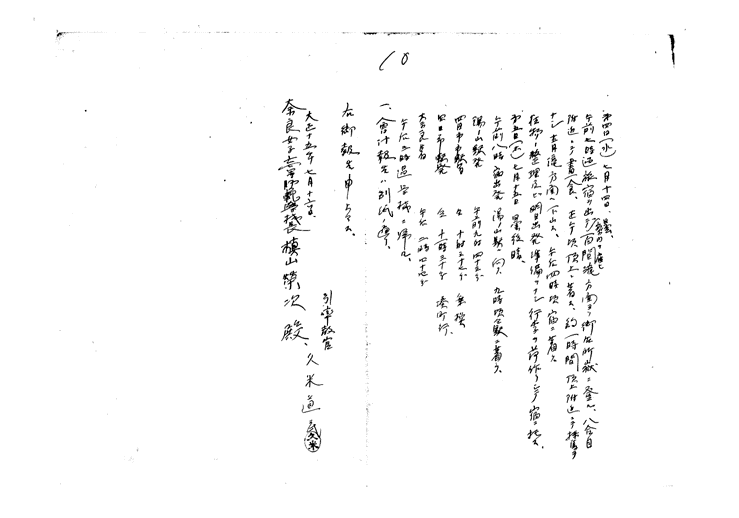 10
第四日(水)七月十四日、曇、
午前七時過旅宿ヲ出デ百間滝方面ヨリ御在所嶽ニ登ル、八合目
附近ニテ昼食、正午頃頂上ニ着ス、約一時間頂上附近ニテ採集ヲ
ナシ 方面ヘ下山ス、午后四時頃宿ニ着ス
整理及ビ明日出発準備ヲナシ行李ヲ荷作リシテ宿ニ
第五日(木)七月十五日 曇後晴、
午前八時宿出発湯ノ山駅ニ向ヒ九時頃駅ニ着ク、
湯ノ山駅発 午前九時四十五分
四日市駅着 仝 十時三十五分
四日市駅発 仝 十一時三十分 湊町行、
奈良着 午后二時四十七分
午后三時過学校ニ帰ル、
一、会計報告ハ別紙ノ通リ、
右御報告申上候也
大正十五年七月十六日
引率教官
久米道
奈良女子高等師範学校長 槇山榮次殿、